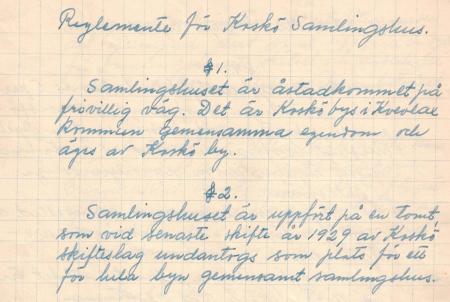 Reglemente för Koskö Samlingshus.
§ 1.
Samlingshuset är åstadkommet på
frivillig väg. Det är Koskö bys i Kvevlax
kommun gemensamma egendom och
äges av Koskö by.
§ 2.
Samlingshuset är uppfört på en tomt,
som vid senaste skifte år 1929 av Koskö
skifteslag undantogs som plats för ett
för hela byn gemensamt samlingshus.